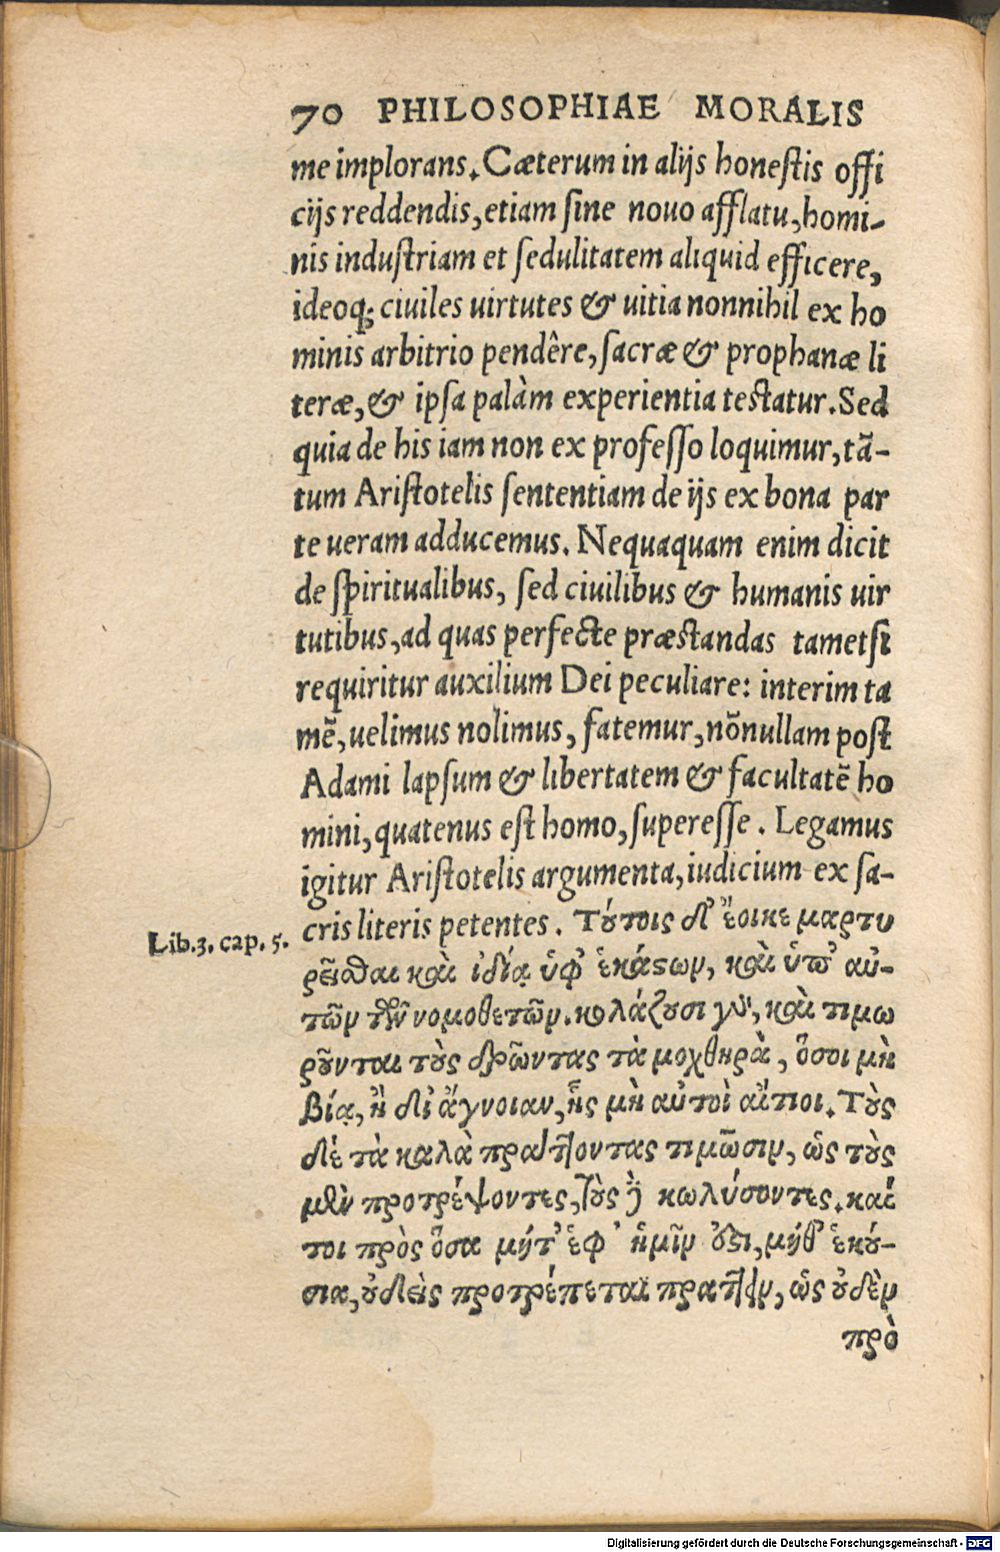 70 PHILOSOPHIAE MORALIS
me implorans. Cæterum in alijs honestis offi
cijs reddendis, etiam sine nouo afflatu, homi-
nis industriam et sedulitatem aliquid efficere,
ideoq; ciuiles uirtutes & uitia nonnihil ex ho
minis arbitrio pendêre, sacræ & prophanæ li
teræ, & ipsa palàm experientia testatur. Sed
quia de his iam non ex professo loquimur, tã-
tum Aristotelis sententiam de ijs ex bona par
te ueram adducemus. Nequaquam enim dicit
de spiritualibus, sed ciuilibus & humanis uir
tutibus, ad quas perfecte præstandas tametsi
requiritur auxilium Dei peculiare: interim ta
mẽ, uelimus nolimus, fatemur, nõnullam post
Adami lapsum & libertatem & facultatẽ ho
mini, quatenus est homo, superesse. Legamus
igitur Aristotelis argumenta, iudicium ex sa-
cris literis petentes. Τούτοις δ᾽ ἔοικε μαρτυ
Lib.3. cap. 5.
ρεῖσθαι καὶ ἰδίᾳ ὑφ᾽ ἑκάστων, καὶ ὑπ᾽ αὐ-
τῶν τῶν νομοθετῶν. κολάζουσι γὰρ, καὶ τιμω
ροῦνται τοὺς δρῶντας τὰ μοχθηρὰ, ὅσοι μὴ
βίᾳ, ἢ δι᾽ ἄγνοιαν, ἧς μὴ αὐτοὶ αἴτιοι. Τοὺς
δὲ τὰ καλὰ πράττοντας τιμῶσιν, ὡς τοὺς
μὲν προτρέψοντες, τοὺς δὲ κωλύσοντες. καί
τοι πρὸς ὅσα μήτ᾽ ἐφ᾽ ἡμῖν ἐστι, μήθ᾽ ἑκού-
σια, οὐδεὶς προτρέπεται πράττειν, ὡς οὐδὲν
πρὸ
Digitalisierung gefördert durch die Deutsche Forschungsgemeinschaft - DFG